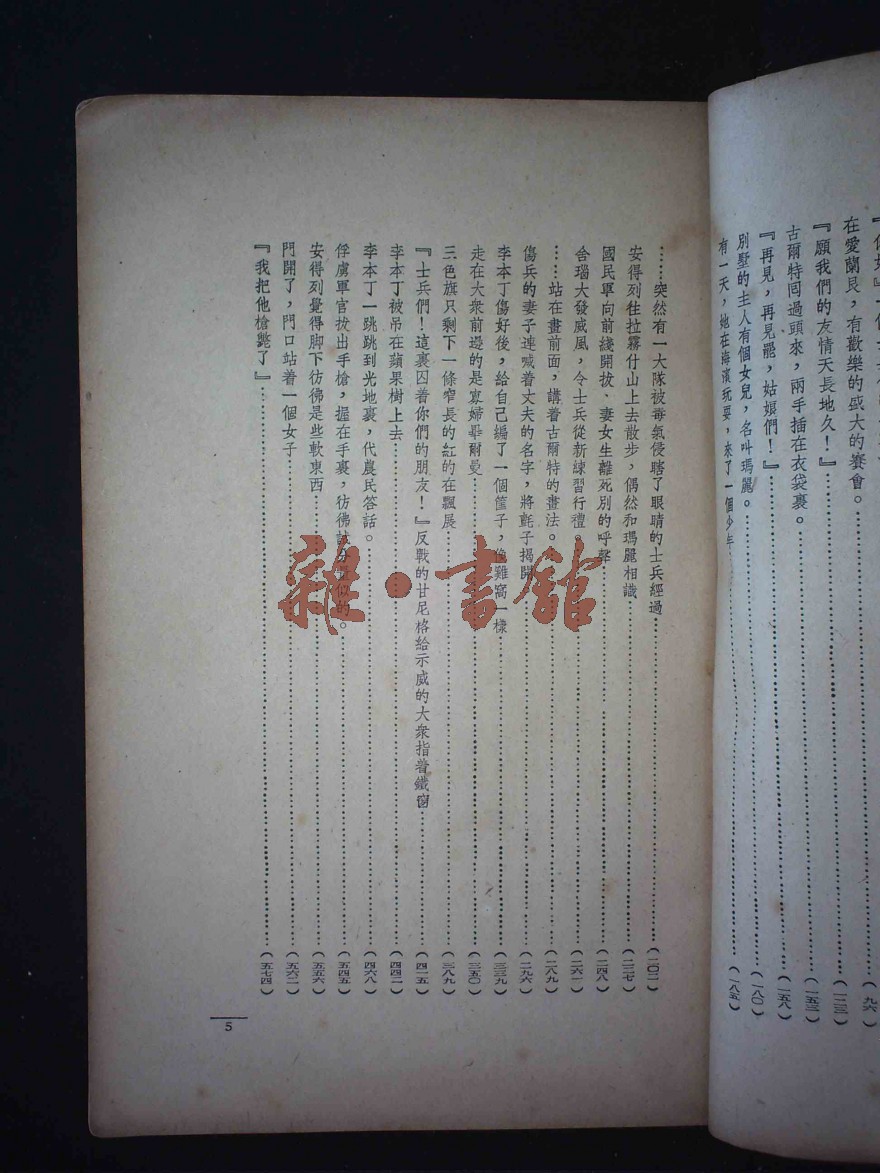 在愛蘭艮，有歡樂的盛大的賽會。……(一二三)
『願我們的友情天長地久！』……(一五三)
古爾特囘過頭來，兩手插在衣袋裏。……(一五八)
『再見，再見罷，姑娘們！』……(一八〇)
別墅的主人有個女兒，名叫瑪麗。……(一八五)
有一天，她在海濱玩耍，來了一個少年
……突然有一大隊被毒氣侵瞎了眼睛的士兵經過……(二〇二)
安得列往拉霧什山上去散步，偶然和瑪麗相識……(二二七)
國民軍向前綫開拔、妻女生離死別的呼聲……(二四八)
舍瑙大發威風，令士兵從新練習行禮……(二六一)
……站在畫前面，講着古爾特的畫法。……(二八九)
傷兵的妻子連喊着丈夫的名字，將氈子揭開……(二九六)
李本丁傷好後，給自己編了一個筐子，像雞窩一樣……(三三九)
走在大衆前邊的是寡婦畢爾曼……(三五〇)
三色旗只剩下一條窄長的紅的在飄展……(三八九)
『士兵們！這裏囚着你們的朋友！』反戰的甘尼格給示威的大衆指着鐵窗……(四一五)
李本丁被吊在蘋果樹上去……(四四二)
李本丁一跳跳到光地裏，代農民答話。……(四六八)
俘虜軍官拔出手槍，握在手裏，彷彿試分量似的。……(五四五)
安得列覺得脚下彷彿是些軟東西……(五五六)
門開了，門口站着一個女子……(五六二)
『我把他槍斃了』……(五七四)
5
雜·書館